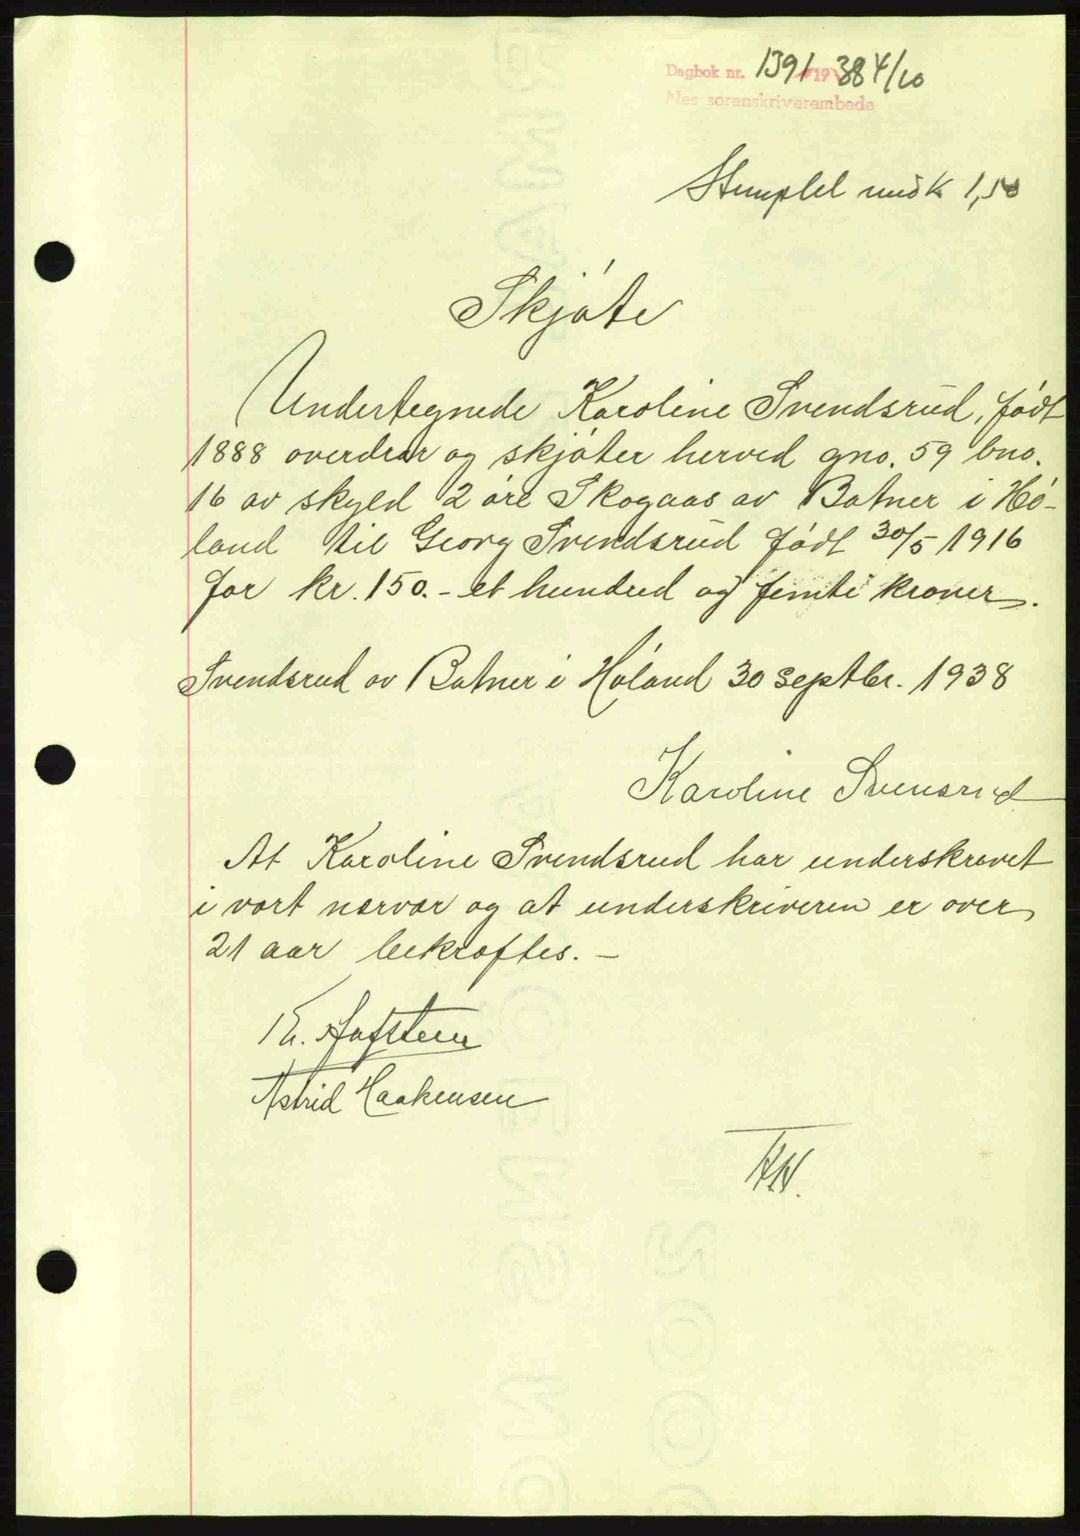 Dagbok nr. 1391 1938 4/10
Nes sorenskriverembede
Stemplet med k 1,50
Skjøte
Undertegnede Karoline Svendsrud, født
1888 overdrar og skjøter herved gno. 59 bno.
16 av skyld 2 øre Skogaas av Botner i Hø-
land til Georg Svendsrud født 30/5 1916
for kr. 150.- et hundred og femti kroner.
Svendsrud av Botner i Høland 30 septbr. 1938
Karoline Svensrud
At Karoline Svendsrud har underskrevet
i vort nærvær og at underskriveren er over
21 aar bekræftes. –
Astrid Haakensen